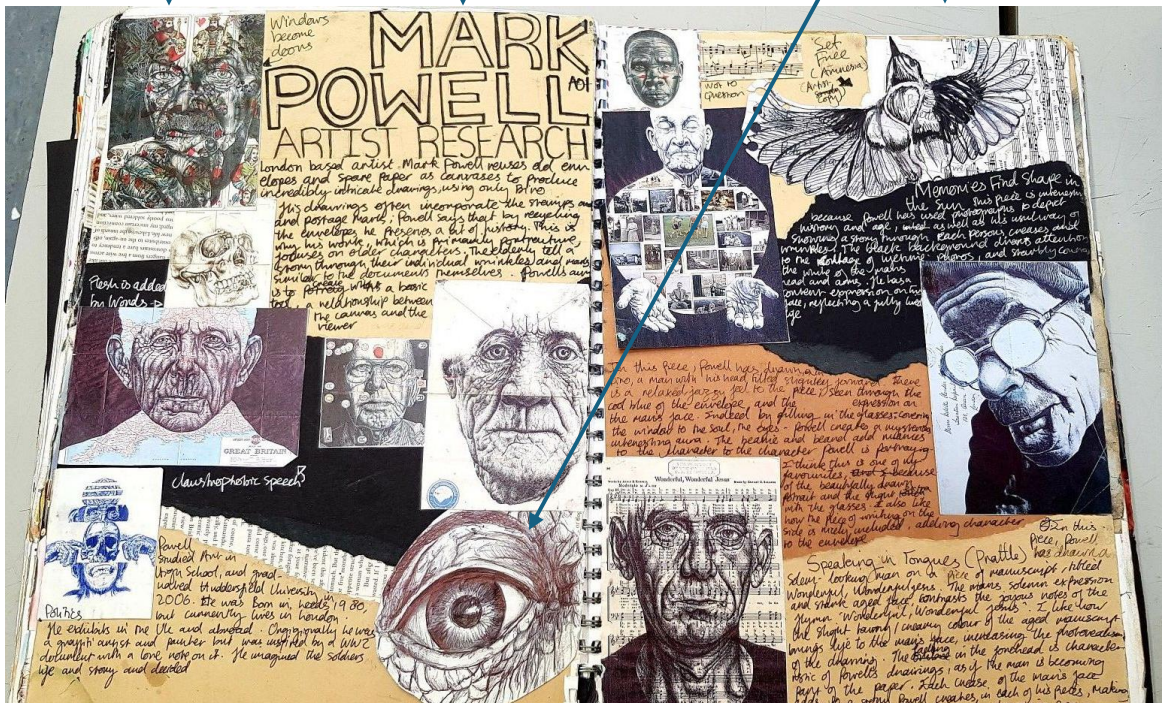 Windows
become
doors
MARK
POWELL
AO1
ARTIST RESEARCH
London based artist Mark Powell reuses old env-
elopes and spare paper as canvases to produce
incredibly intricate drawings, using only Biro
His drawings often incorporate the stamps and
the postage mark, Powell says that by recycling
the envelopes he preserves a bit of history. This is
why his works, which is primarily portraiture
focuses on older characters. The elderly tell a
story through their individual wrinkles and marks
similar to the documents themselves. Powell's aim
to create a basic
a relationship between
the canvas and the
viewer
Flesh is added
by Words
GREAT BRITAIN
claustrophobic speech
Politics
Powell
studied Art in
High School, and grad-
uated Huddersfield University in
2006. He was born in Leeds, 1980,
but currently lives in London.
He exhibits in the UK and abroad. Originally he was
a graffiti artist and painter but was inspired by a WW2
document with a love note on it. He imagined the soldiers
life and story and decided
Not to
Question
"Set
Free
(Amnesia)
(Artist
copy)
Memories Find Shape in
the Sun. This piece is interesting
because Powell has used photographs to depict
history and age,
showing a story through each persons creases and
wrinkles. The black background adverts attention
to the collage of lifetime photos, and starkly
the white of the mans
head and arms. He has a
content expression on his
face, reflecting a fully lived
life
In this piece, Powell has drawn
a man with his head tilted slightly forward. There
is a relaxed jazzy feel to the piece, seen through the
cool blue of the envelope, and the expression on
the man's face. Indeed by filling in the glasses, covering
the window to the soul, the eyes - Powell creates a mysterious
interesting aura. The beanie and beard add nuances
to the character to the character Powell is portraying
I think this is one of my
favourites, because
of the beautifully drawn
portrait and the
with the glasses. I also like
how the piece of writing on the
side is nicely included, adding character
to the envelope
Wonderful, Wonderful Jesus
In this
piece, Powell
has drawn a
Speaking in Tongues (Prattle)
solemn-looking man on a piece of manuscript, titled
Wonderful, Wonderful Jesus. The mans solemn expression
and stark aged face, contrasts the joyous notes of the
Hymn 'Wonderful, Wonderful Jesus'. I like how
the slight tawny/creamy colour of the aged manuscript
brings life to the man's face, increasing the photorealism
of the drawing. The fading in the forehead is character-
istic of Powell's drawings, as if the man is becoming
part of the paper. Each crease of the man's face
adds to a story Powell creates, in each of his pieces, making